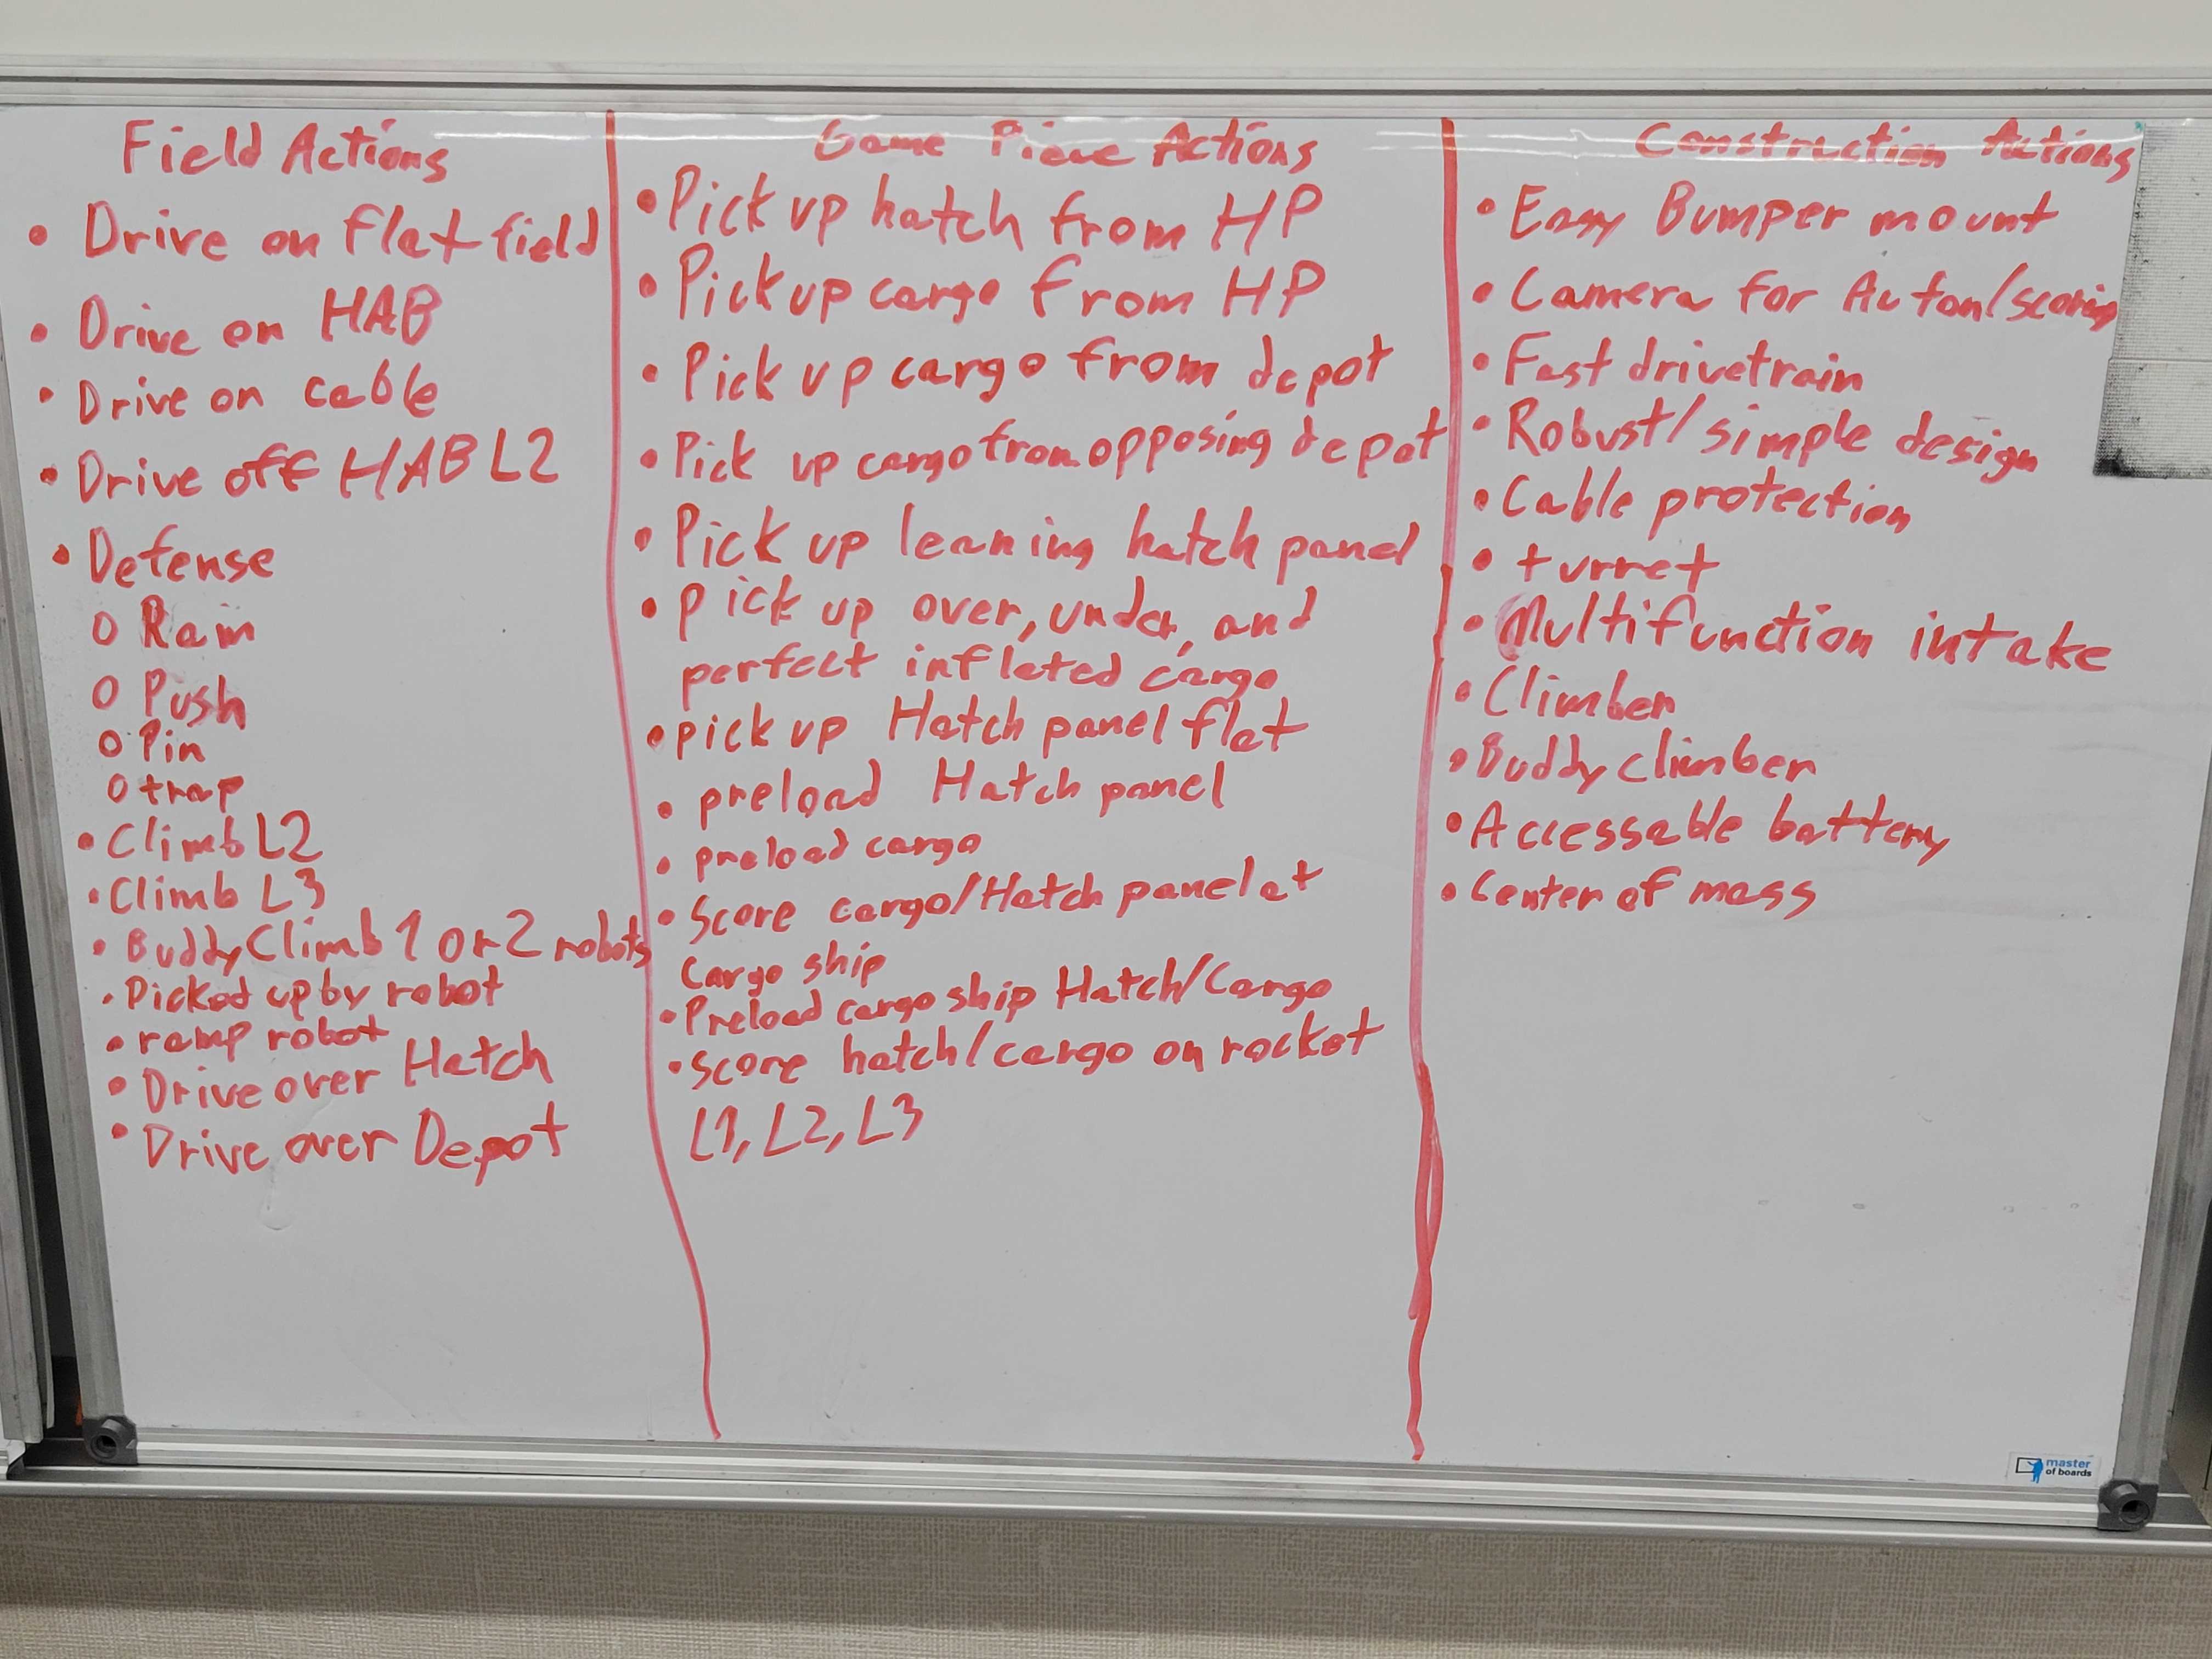 Field Actions
• Drive on flat field
• Drive on HAB
• Drive on cable
• Drive off HAB L2
• Defense
o Ram
o Push
o Pin
o trap
• Climb L2
• Climb L3
• Buddy Climb 1 or 2 robots
• Picked up by robot
• ramp robot
• Drive over Hatch
• Drive over Depot
Game Piece Actions
• Pick up hatch from HP
• Pick up cargo from HP
• Pick up cargo from depot
• Pick up cargo from opposing depot
• Pick up leaning hatch panel
• Pick up over, under, and
perfect inflated cargo
• pick up Hatch panel flat
• preload Hatch panel
• preload cargo
• Score cargo/Hatch panel at
Cargo ship
• Preload cargo ship Hatch/Cargo
• Score hatch/cargo on rocket
L1, L2, L3
Construction Actions
• Easy Bumper mount
• Camera for Auton/scoring
• Fast drivetrain
• Robust/simple design
• Cable protection
• turret
• Multifunction intake
• Climber
• Buddy climber
• Accessable battery
• Center of mass
master
of boards